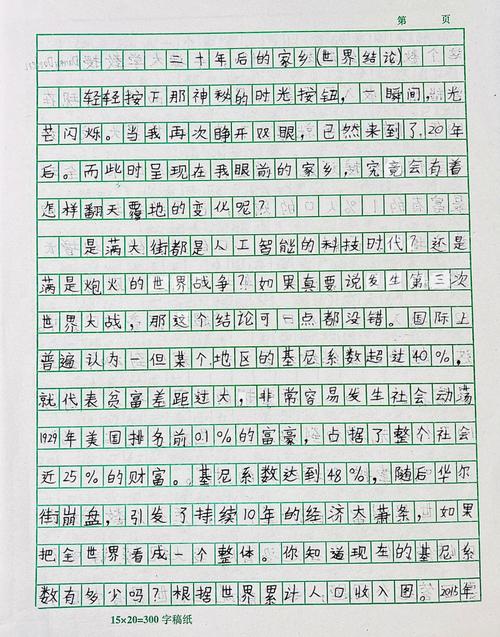 第 页
二十年后的家乡(世界结论)
轻轻按下那神秘的时光按钮,一瞬间,光
芒闪烁。当我再次睁开双眼,已然来到了20年
后。而此时呈现在我眼前的家乡,究竟会有着
怎样翻天覆地的变化呢?
是满大街都是人工智能的科技时代?还是
满是炮火的世界战争?如果真要说发生第三次
世界大战,那这个结论可一点都没错。国际上
普遍认为一但某个地区的基尼系数超过40%,
就代表贫富差距过大,非常容易发生社会动荡
1929年美国排名前0.1%的富豪,占据了整个社会
近25%的财富。基尼系数达到48%,随后华尔
街崩盘,引发了持续10年的经济大萧条,如果
把全世界看成一个整体。你知道现在的基尼系
数有多少吗?根据世界累计人口收入图。2015年
15×20=300字稿纸